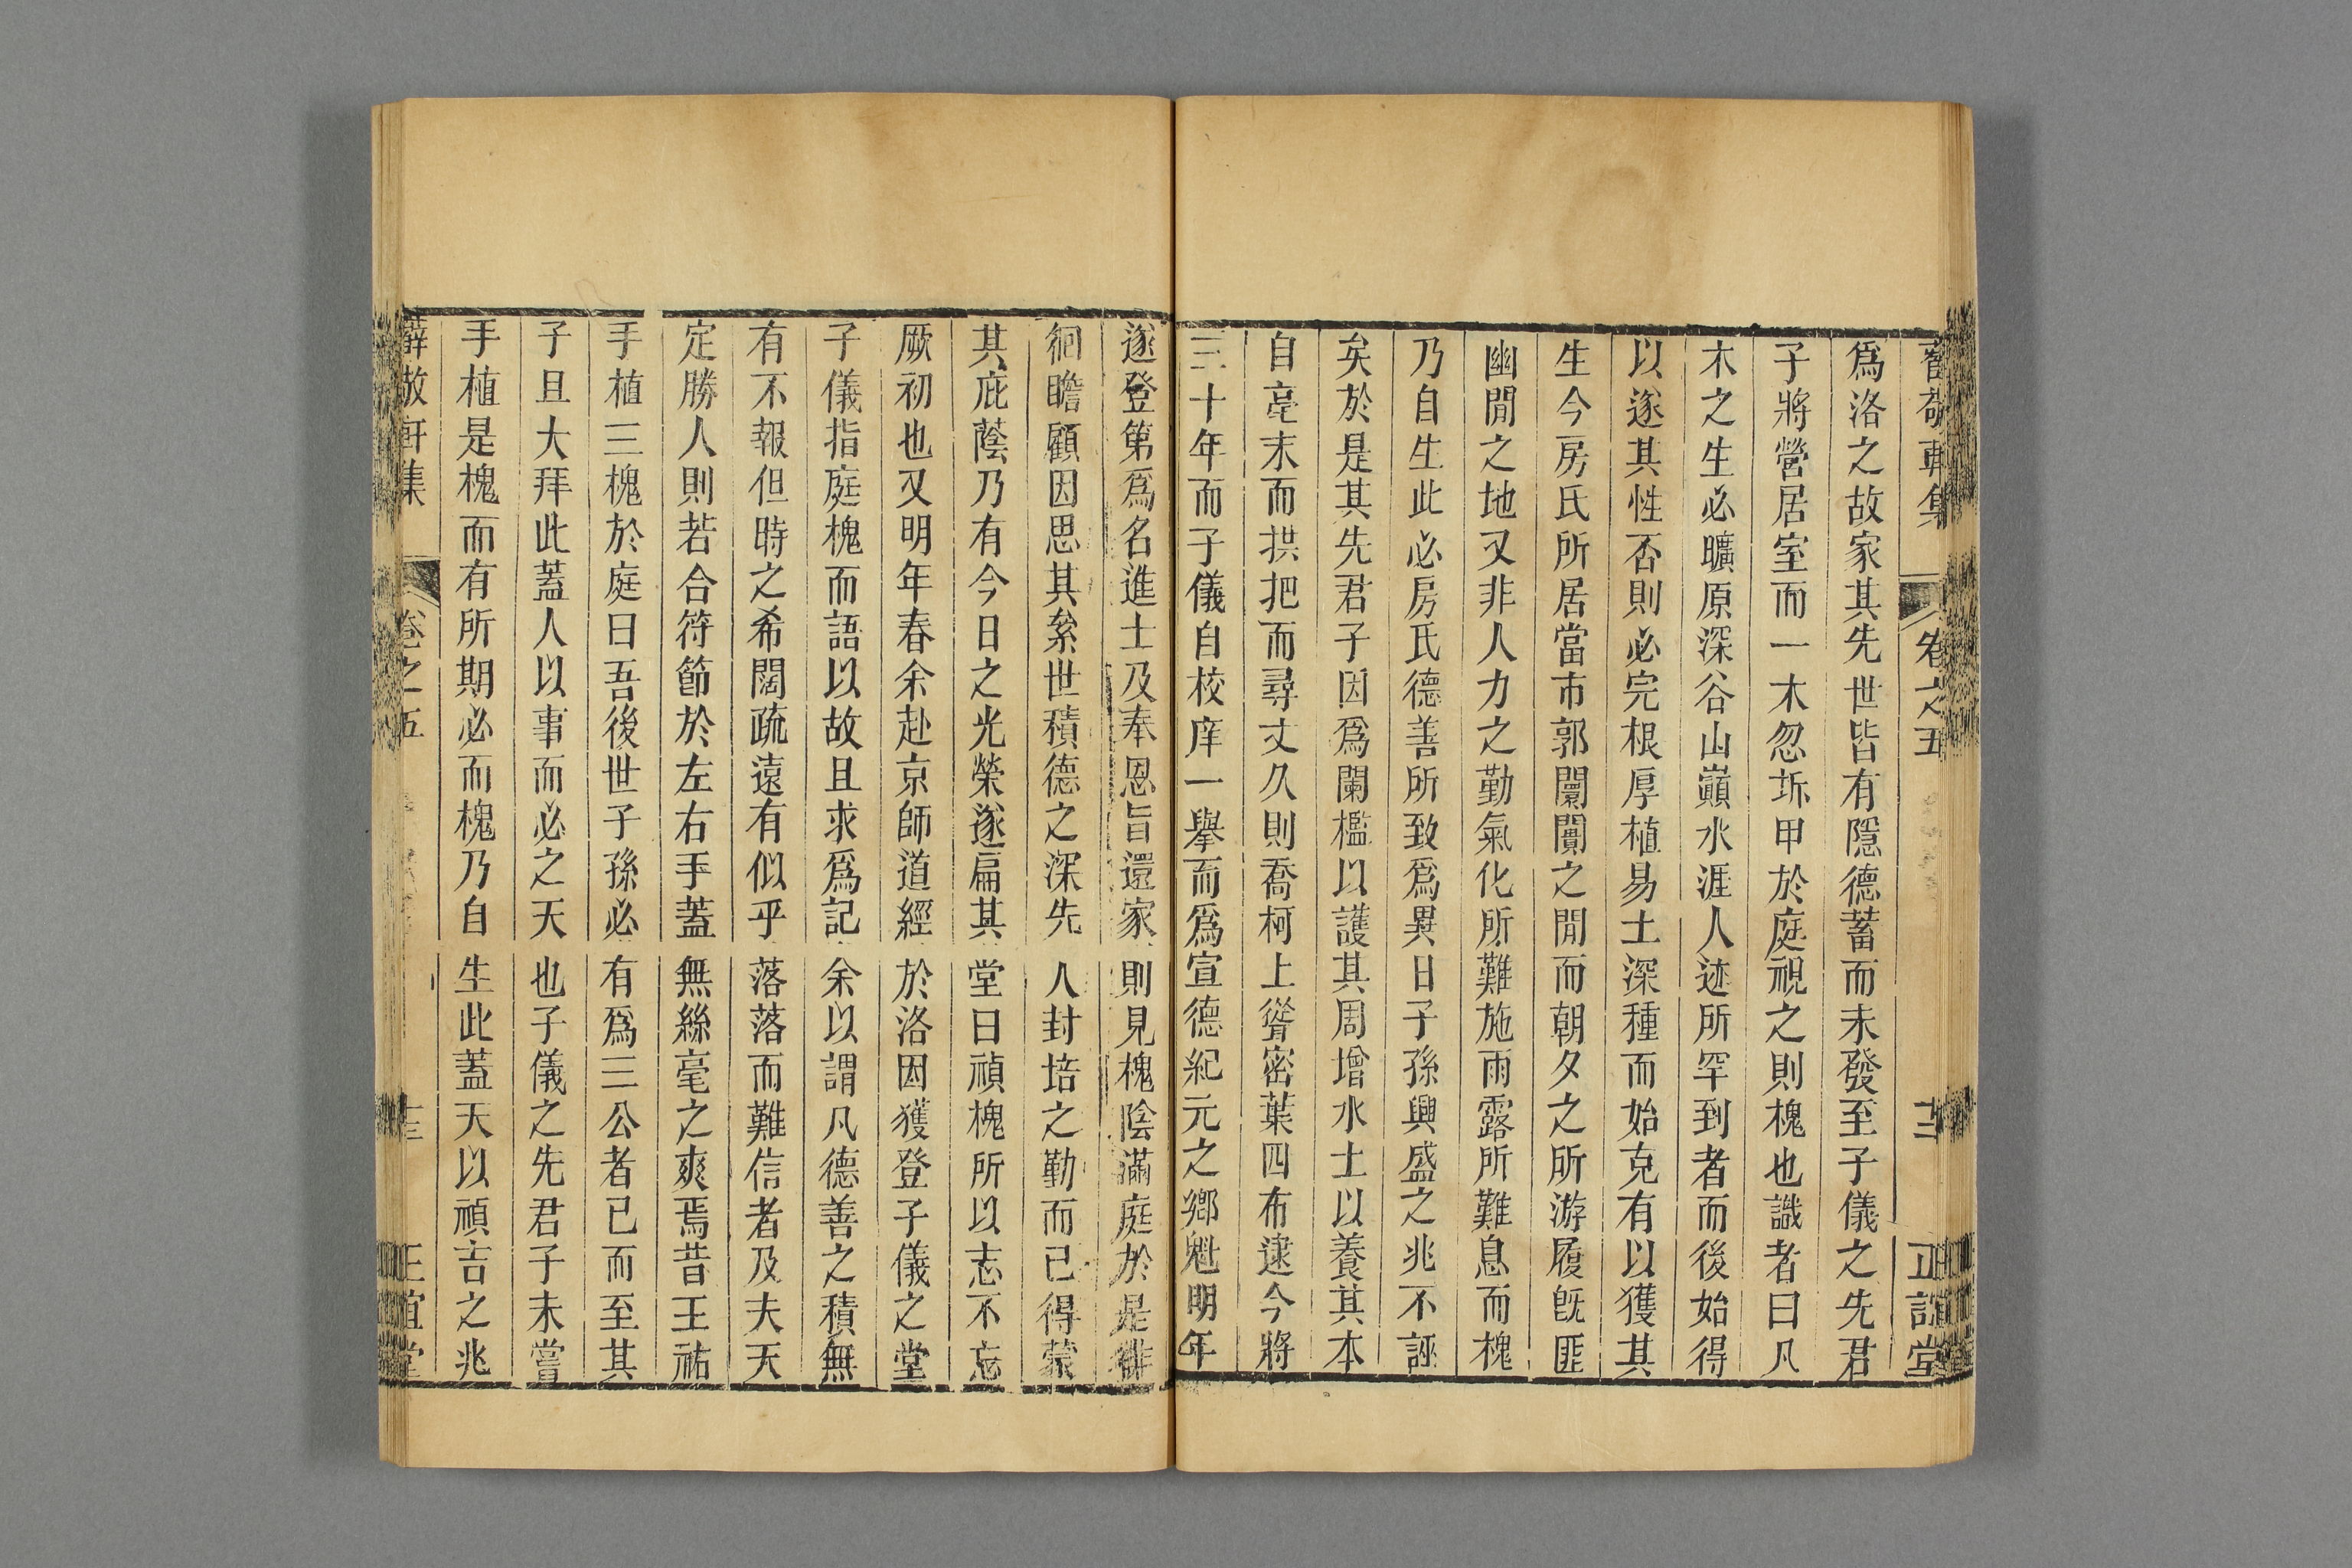 薛敬軒集 卷之五 十二 正誼堂
爲洛之故家其先世皆有隱德蓄而未發至子儀之先君
子將營居室而一木忽坼甲於庭視之則槐也識者曰凡
木之生必曠原深谷山巔水涯人迹所罕到者而後始得
以遂其性否則必完根厚植易土深種而始克有以獲其
生今房氏所居當市郭闤闠之閒而朝夕之所游履旣匪
幽閒之地又非人力之勤氣化所難施雨露所難息而槐
乃自生此必房氏德善所致爲異日子孫興盛之兆不誣
矣於是其先君子因爲闌檻以護其周增水土以養其本
自毫末而拱把而尋丈久則喬柯上聳密葉四布逮今將
三十年而子儀自校庠一舉而爲宣德紀元之鄉魁明年
遂登第爲名進士及奉恩旨還家則見槐陰滿庭於是徘
徊瞻顧因思其絫世積德之深先人封培之勤而已得蒙
其庇蔭乃有今日之光榮遂扁其堂曰禎槐所以志不忘
厥初也又明年春余赴京師道經於洛因獲登子儀之堂
子儀指庭槐而語以故且求爲記余以謂凡德善之積無
有不報但時之希闊疏遠有似乎落落而難信者及夫天
定勝人則若合符節於左右手蓋無絲毫之爽焉昔王祐
手植三槐於庭曰吾後世子孫必有爲三公者已而至其
子且大拜此蓋人以事而必之天也子儀之先君子未嘗
手植是槐而有所期必而槐乃自生此蓋天以禎吉之兆
薛敬軒集 卷之五 十三 正誼堂